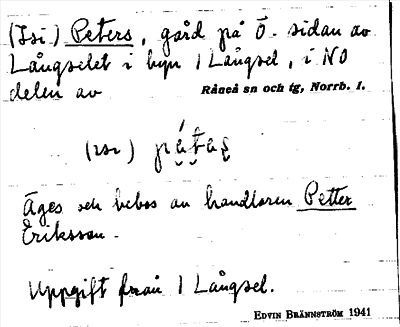 (Isi) Peters, gård på Ö. sidan av
Långselet i byn 1 Långsel, i NO
delen av Råneå sn och tg, Norrb. l.
(isi)
Äges och bebos av handlaren Petter
Eriksson.
Uppgift från 1 Långsel.
EDVIN BRÄNNSTRÖM 1941